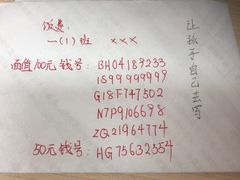 饭费:
一(1)班 ×××
面值100元钱号: BH04189233
1899.999999
G18F747502
N7P9106698
ZQ21964774
50元钱号: HG75632554
让孩子自己去写